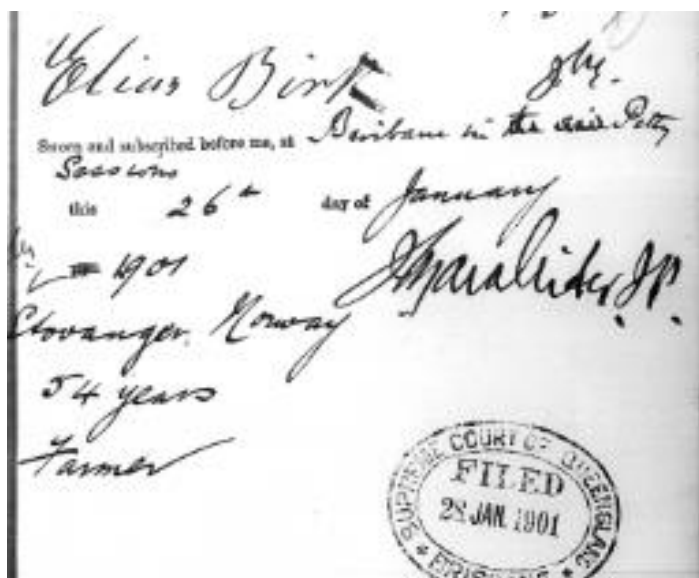 Elias Birk
Sworn and subscribed before me, at Brisbane in the said Petty
Sessions
this 26th day of January
1901
J.P.
Stavanger, Norway
54 years
Farmer
SUPREME COURT OF QUEENSLAND
FILED
28 JAN. 1901
BRISBANE